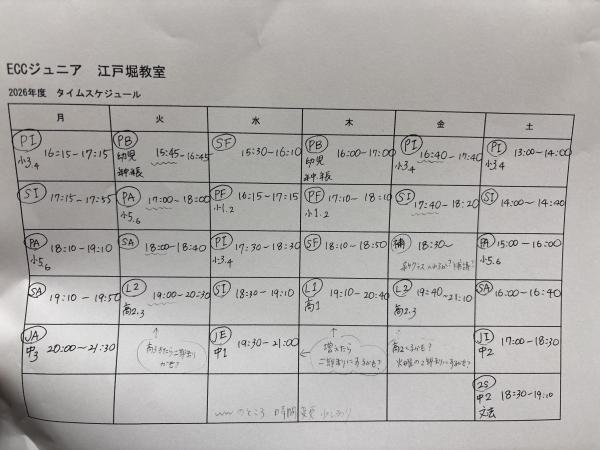 ECCジュニア 江戸堀教室
2026年度 タイムスケジュール
月 火 水 木 金 土
PI 小3.4 16:15-17:15
PB 幼児 年中.年長 15:45-16:45
SF 15:30-16:10
PB 幼児 年中.年長 16:00-17:00
PI 小3.4 16:40-17:40
PI 小3.4 13:00-14:00
SI 17:15-17:55
PA 小5.6 17:00-18:00
PF 小1.2 16:15-17:15
PF 小1.2 17:10-18:10
SI 17:40-18:20
SI 14:00-14:40
PA 小5.6 18:10-19:10
SA 18:00-18:40
PI 小3.4 17:30-18:30
SF 18:10-18:50
補 18:30~
PA 小5.6 15:00-16:00
SA 19:10-19:50
L2 高2.3 19:00-20:30
SI 18:30-19:10
L1 高1 19:10-20:40
L2 高2.3 19:40~21:10
SA 16:00-16:40
JA 中3 20:00~21:30
↑
JE 中1 19:30-21:00
← 増えたら
JI 中2 17:00-18:30
2S 中2 文法 18:30-19:10
のところ 時間変更